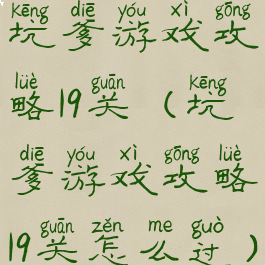 kēng diē yóu xì gōng
坑爹游戏攻
lüè guān kēng
略19关（坑
diē yóu xì gōng lüè
爹游戏攻略
guān zěn me guò
19关怎么过）